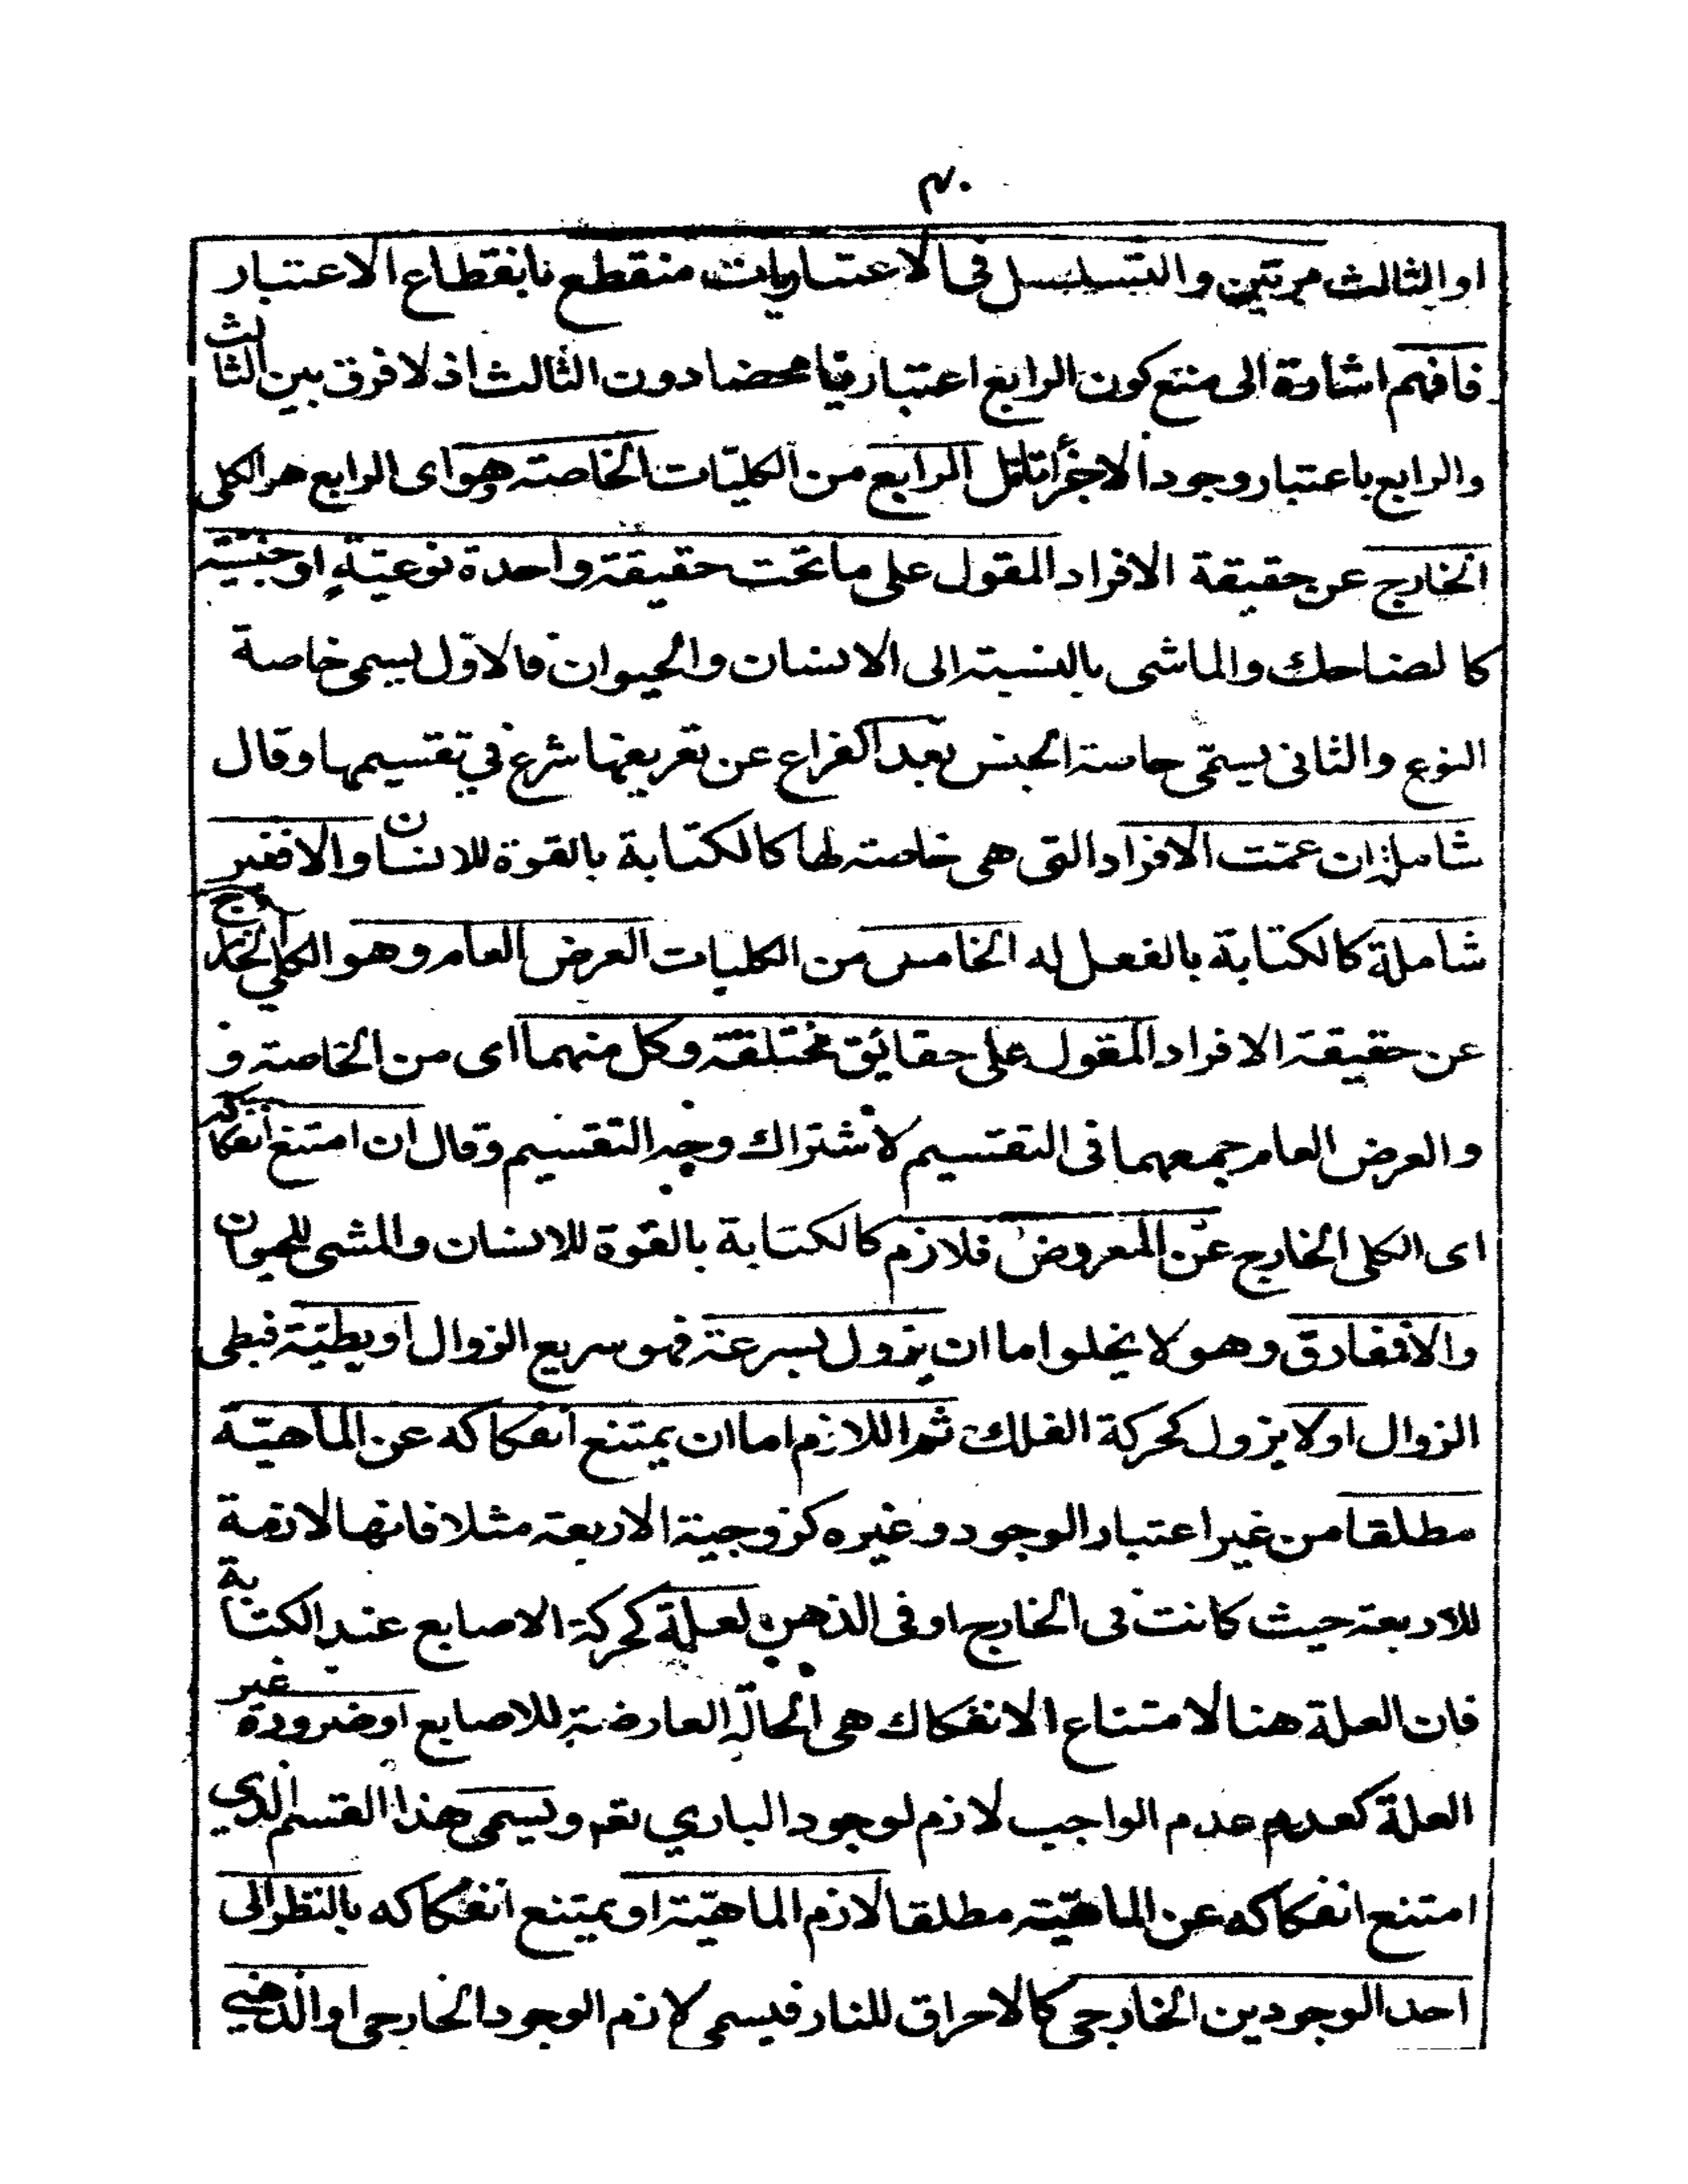 ٤٠
او الثالث مرتين والتسلسل فى الاعتباريات منقطع بانقطاع الاعتبار
فافهم اشارة الى منع كون الرابع اعتباريا محضا دون الثالث اذ لا فرق بين الثالث
والرابع باعتبار وجود الاجزا تامل الرابع من الكليات الخاصة هو اى الرابع هو الكلى
الخارج عن حقيقة الافراد المقول على ما تحت حقيقة واحدة نوعية او جنسية
كا لضاحك والماشى بالنسبة الى الانسان والحيوان فالاول يسمى خاصة
النوع والثانى يسمى خاصة الجنس بعد الفراغ عن تعريفها شرع في تقسيمها وقال
شاملة ان عمت الافراد التى هى خاصة لها كالكتابة بالقوة للانسان والا فغير
شاملة كالكتابة بالفعل له الخامس من الكليات العرض العام وهو الكلي الخارج
عن حقيقة الافراد المقول على حقائق مختلفة وكل منهما اى من الخاصة و
والعرض العام جمعهما فى التقسيم لاشتراك وجه التقسيم وقال ان امتنع انفكاكه
اى الكلى الخارج عن المعروض فلازم كالكتابة بالقوة للانسان والمشى للحيوان
والا فمفارق وهو لا يخلوا اما ان يزول بسرعة فهو سريع الزوال او بطيئة فبطى
الزوال او لا يزول كحركة الفلك ثم اللازم اما ان يمتنع انفكاكه عن الماهية
مطلقا من غير اعتبار الوجود وغيره كزوجية الاربعة مثلا فانها لازمة
للاربعة حيث كانت فى الخارج او فى الذهن لعلة كحركة الاصابع عند الكتابة
فان العلة هنا لامتناع الانفكاك هى الحالة العارضة للاصابع او ضرورة غير
العلة كعدم عدم الواجب لازم لوجود الباري تعم ويسمى هذا القسم الذي
امتنع انفكاكه عن الماهية مطلقا لازم الماهية او يمتنع انفكاكه بالنظر الى
احد الوجودين الخارجى كالاحراق للنار فيسمى لازم الوجود الخارجى او الذهني